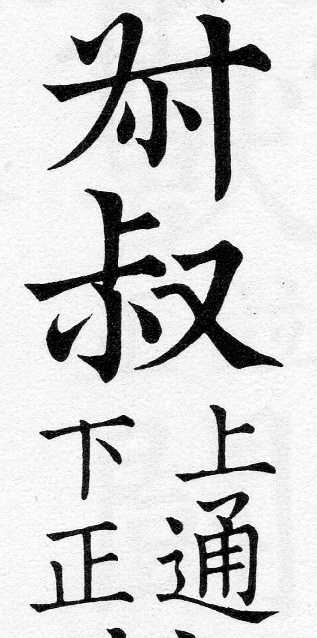 叔
上通
下正